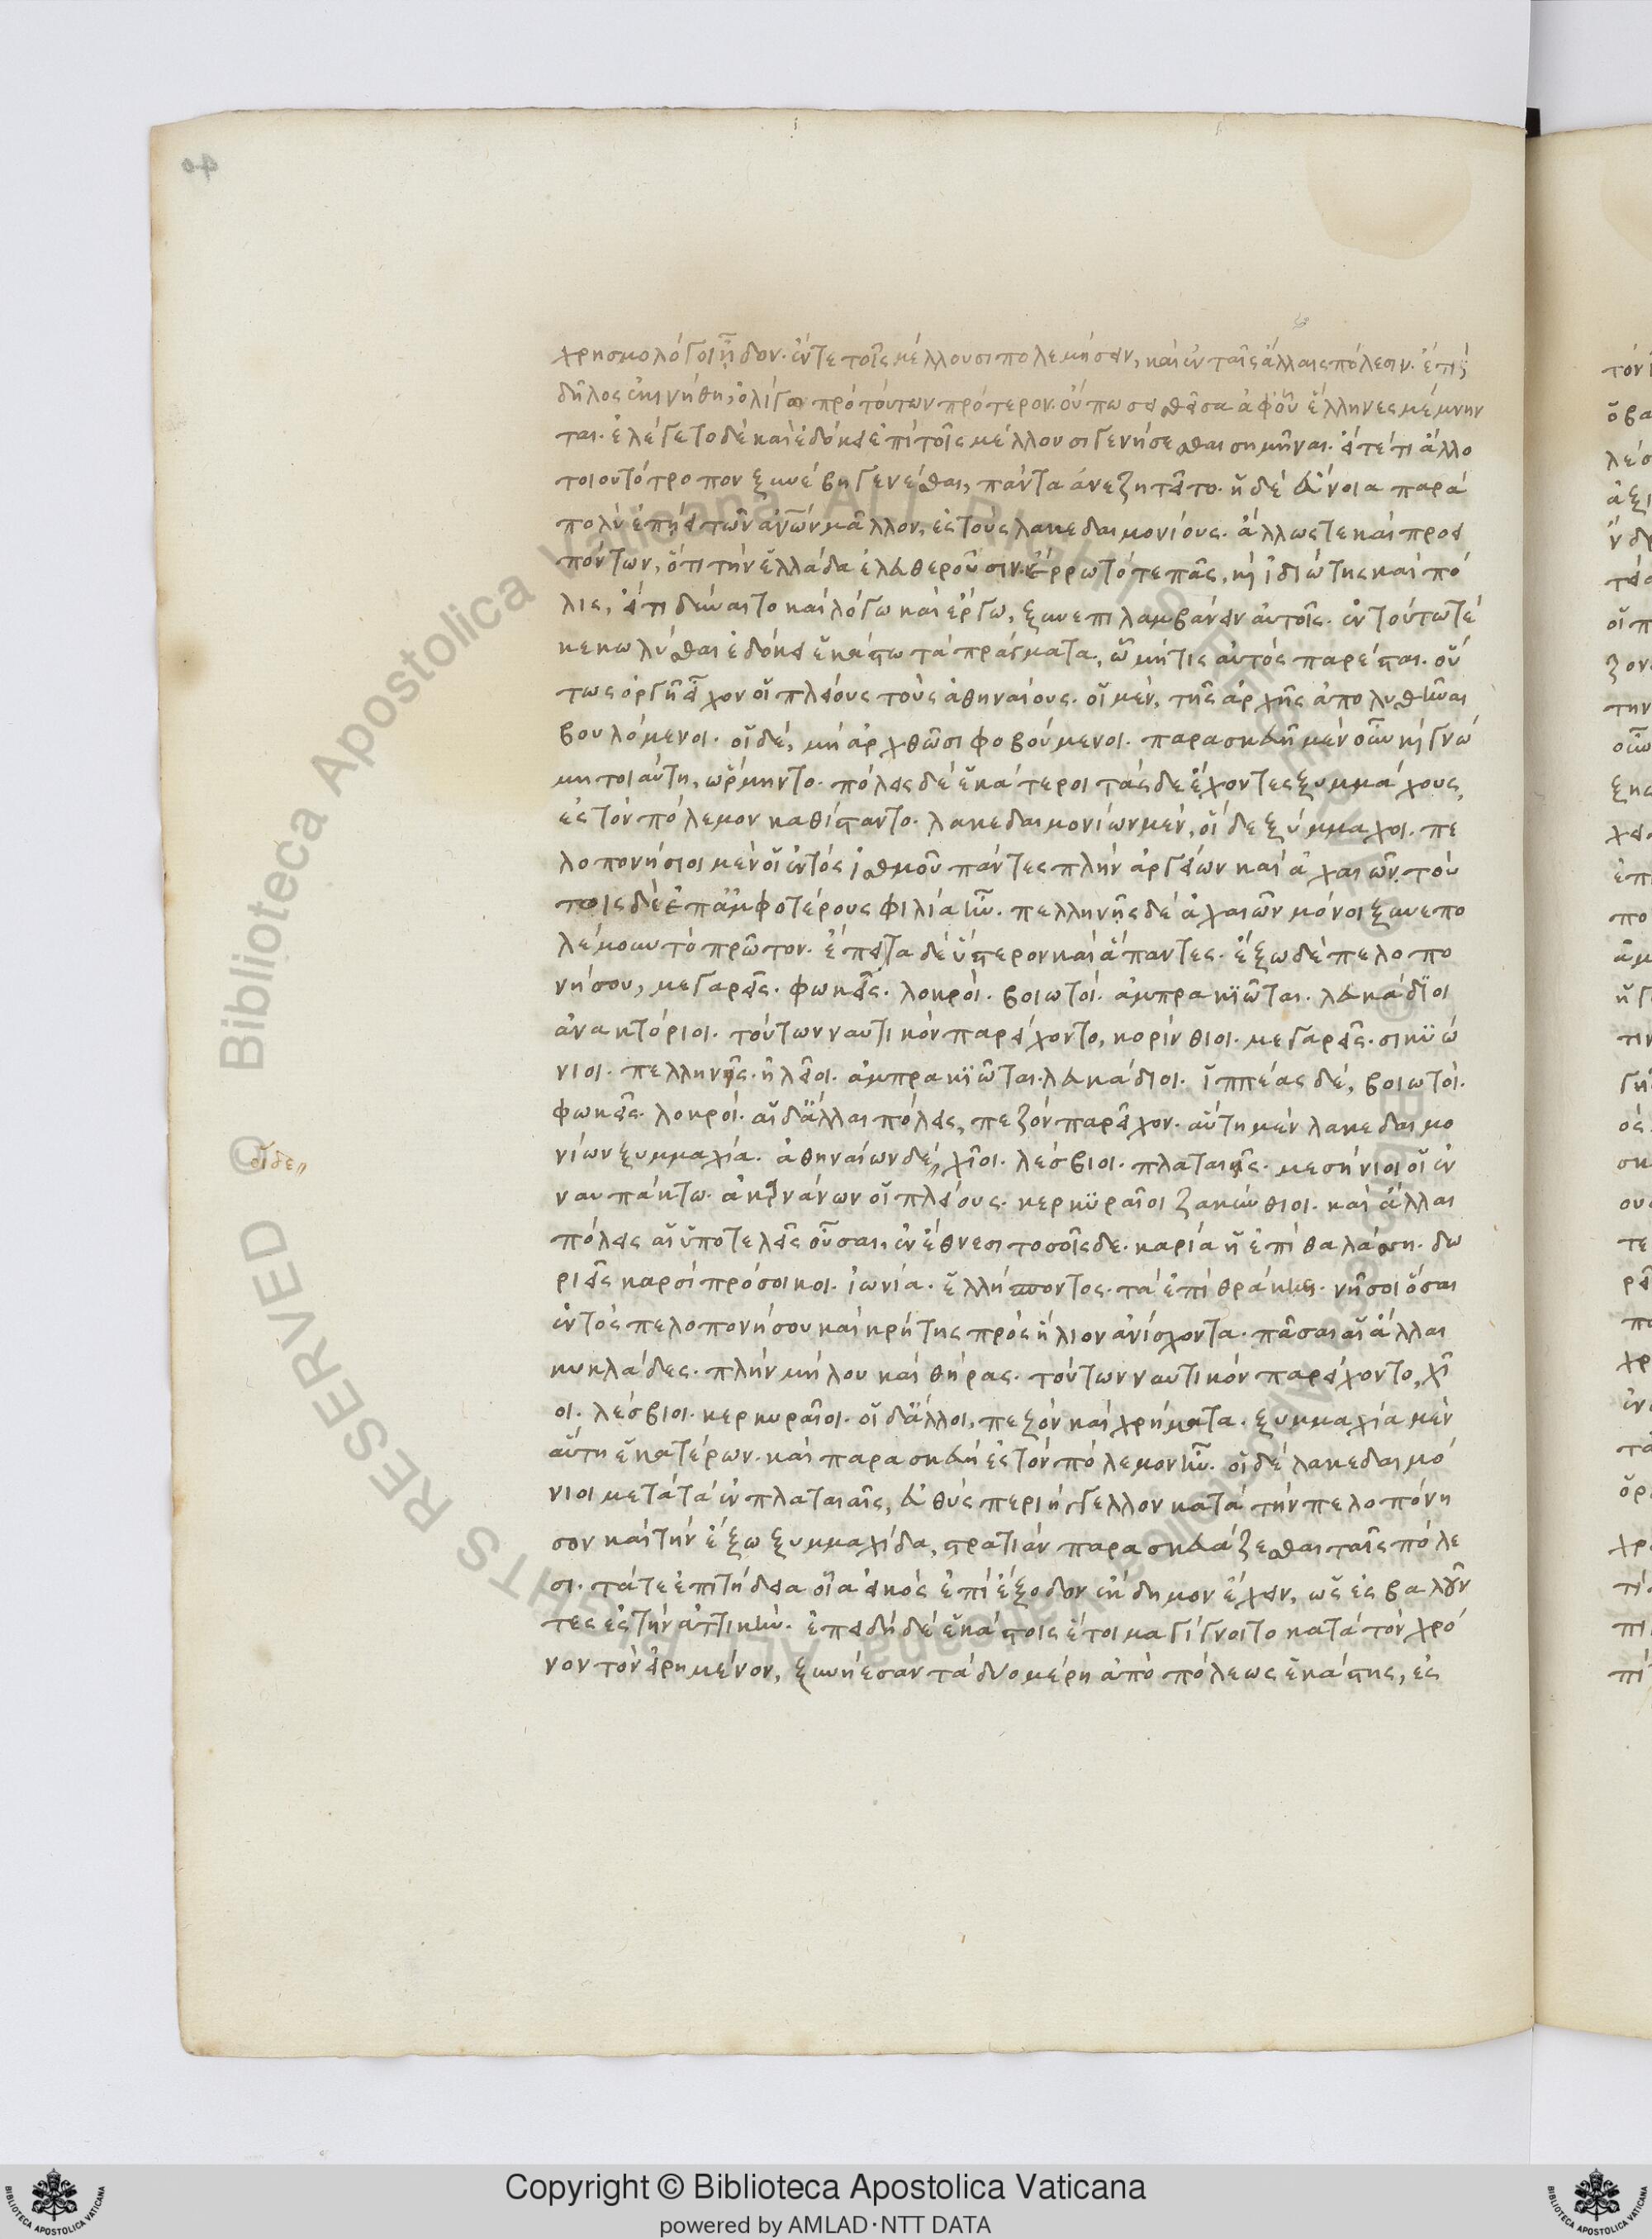 χρησμολόγοι ᾖδον. ἔν τε τοῖς μέλλουσι πολεμήσειν, καὶ ἐν ταῖς ἄλλαις πόλεσιν. ἔτι δὲ
δῆλος ἐκινήθη, ὀλίγον πρὸ τούτων πρότερον οὔπω σεισθεῖσα ἀφ' οὗ ἕλληνες μέμνην
ται. ἐλέγετο δὲ καὶ ἐδόκει ἐπὶ τοῖς μέλλουσι γενήσεσθαι σημῆναι. εἴ τέ τι ἄλλο
τοιουτότροπον ξυνέβη γενέσθαι, πάντα ἀνεζητεῖτο. ἡ δὲ εὔνοια παρὰ
πολὺ ἐπῄει τῶν ἀνων μᾶλλον, ἐς τοὺς λακεδαιμονίους. ἄλλως τε καὶ προει
πόντων, ὅτι τὴν ἑλλάδα ἐλευθεροῦσιν. ἔρρωτό τε πᾶς, καὶ ἰδιώτης καὶ πό
λις, εἴ τι δύναιτο καὶ λόγω καὶ ἔργω, ξυνεπιλαμβάνειν αὐτοῖς. ἐν τούτω τὲ
κεκωλύσθαι ἐδόκει ἑκάστω τὰ πράγματα, ὧ μή τις αὐτὸς παρέσται. οὕ
τως ὀργῆ εἶχον οἱ πλείους τοὺς ἀθηναίους. οἱ μὲν, τῆς ἀρχῆς ἀπολυθῆναι
βουλόμενοι. οἱ δὲ, μὴ ἀρχθῶσι φοβούμενοι. παρασκευῆ μὲν οὖν καὶ γνώ
μη τοιαύτη, ὥρμηντο. πόλεις δὲ ἑκάτεροι τάς δε ἔχοντες ξυμμάχους,
ἐς τὸν πόλεμον καθίσταντο. λακεδαιμονίων μὲν, οἵ δε ξύμμαχοι. πε
λοπονήσιοι μὲν οἱ ἐντὸς ἰσθμοῦ πάντες πλὴν ἀργείων καὶ ἀχαιῶν. τού
τοις δὲ ἐπ' ἀμφοτέρους φιλία ἦν. πελληνῆς δὲ ἀχαιῶν μόνοι ξυνεπο
λέμουν τὸ πρῶτον. ἔπειτα δὲ ὕστερον καὶ ἅπαντες. ἔξω δὲ πελοπο
νήσου, μεγαρεῖς. φωκεῖς. λοκροί. βοιωτοί. ἀμπρακϊῶται. λευκάδϊοι
ἀνακτόριοι. τούτων ναυτικὸν παρείχοντο, κορίνθιοι. μεγαρεῖς. σικϋώ
νιοι. πελληνῆς. ἠλεῖοι. ἀμπρακϊῶται. λευκάδιοι. ἱππέας δὲ, βοιωτοί.
φωκεῖς. λοκροί. αἱ δ' ἄλλαι πόλεις, πεζὸν παρεῖχον. αὕτη μὲν λακεδαιμο
νίων ξυμμαχία. ἀθηναίων δὲ, χῖοι. λέσβιοι. πλαταιῆς. μεσήνιοι οἱ ἐν
ναυπάκτω. ἀκαρνάνων οἱ πλείους. κερκϋραῖοι ζακύνθιοι. καὶ ἄλλαι
πόλεις αἱ ὑποτελεῖς οὖσαι, ἐν ἔθνεσι τοσοῖς δε. καρία ἡ ἐπὶ θαλάσση. δω
ριεῖς καρσὶ πρόσοικοι. ἰωνία. ἑλλήσποντος. τὰ ἐπὶ θράκης. νῆσοι ὅσαι
ἐντὸς πελοπονήσου καὶ κρήτης πρὸς ἥλιον ἀνίσχοντα. πᾶσαι αἱ ἄλλαι
κυκλάδες. πλὴν μήλου καὶ θήρας. τούτων ναυτικὸν παρείχοντο, χῖ
οι. λέσβιοι. κερκυραῖοι. οἱ δ' ἄλλοι, πεζὸν καὶ χρήματα. ξυμμαχία μὲν
αὕτη ἑκατέρων. καὶ παρασκευὴ ἐς τὸν πόλεμον ἦν. οἱ δὲ λακεδαιμό
νιοι μετὰ τὰ ἐν πλαταιαῖς, εὐθὺς περιήγγελλον κατὰ τὴν πελοπόνη
σον καὶ τὴν ἔξω ξυμμαχίδα, στρατιὰν παρασκευάζεσθαι ταῖς πόλε
σι. τά τε ἐπιτήδεια οἷα εἰκὸς ἐπὶ ἔξοδον ἔκδημον ἔχειν, ὡς ἐσβαλοῦν
τες ἐς τὴν ἀττικήν. ἐπειδὴ δὲ ἑκάστοις ἕτοιμα γίγνοιτο κατὰ τὸν χρό
νον τὸν εἰρημένον, ξυνήεσαν τὰ δύο μέρη ἀπὸ πόλεως ἑκάστης, ἐς
οἵδε
40
© Biblioteca Apostolica Vaticana ALL RIGHTS RESERVED
Copyright © Biblioteca Apostolica Vaticana
powered by AMLAD·NTT DATA
BIBLIOTECA APOSTOLICA VATICANA
BIBLIOTECA APOSTOLICA VATICANA